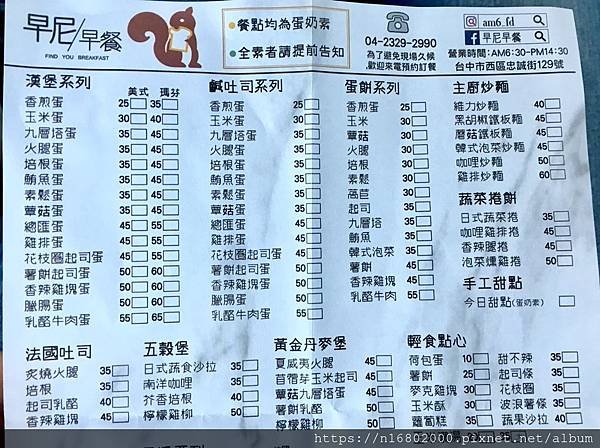 早尼/早餐
FIND YOU BREAKFAST
●餐點均為蛋奶素
●全素者請提前告知
04-2329-2990
為了避免現場久候
,歡迎來電預約訂餐
am6_fd
早尼早餐
營業時間:AM6:30-PM14:30
台中市西區忠誠街129號
漢堡系列
美式 瑪芬
香煎蛋 25 35
玉米蛋 30 40
九層塔蛋 35 45
火腿蛋 35 45
培根蛋 35 45
鮪魚蛋 35 45
素鬆蛋 35 45
蕈菇蛋 35 45
總匯蛋 45 55
雞排蛋 45 55
花枝圈起司蛋 45 55
薯餅起司蛋 50 60
香辣雞塊蛋 50 60
臘腸蛋 50 60
乳酪牛肉蛋 55 65
鹹吐司系列
香煎蛋 25
玉米蛋 30
九層塔蛋 35
火腿蛋 35
培根蛋 35
鮪魚蛋 35
素鬆蛋 35
蕈菇蛋 35
總匯蛋 45
雞排蛋 45
花枝圈起司蛋 45
薯餅起司蛋 50
香辣雞塊蛋 50
臘腸蛋 50
乳酪牛肉蛋 55
蛋餅系列
香煎蛋 25
玉米 30
蕈菇 30
火腿 30
培根 30
素鬆 30
萵苣 30
起司 35
九層塔 35
鮪魚 35
韓式泡菜 45
薯餅 45
香辣雞塊 45
乳酪牛肉 55
主廚炒麵
維力炒麵 40
黑胡椒鐵板麵 45
蘑菇鐵板麵 45
韓式泡菜炒麵 45
咖哩炒麵 50
雞排炒麵 60
蔬菜捲餅
日式蔬菜捲 35
咖哩雞排捲 45
香辣腿捲 45
泡菜燻雞捲 50
手工甜點
今日甜點(蛋奶素)
法國吐司
炙燒火腿 35
培根 35
起司乳酪 40
香辣雞塊 45
五穀堡
日式蔬食沙拉 35
南洋咖哩 35
芥香培根 40
檸檬雞柳 50
黃金丹麥堡
夏威夷火腿 45
苜蓿芽玉米起司 45
蕈菇九層塔蛋 45
薯餅乳酪 50
檸檬雞柳 55
輕食點心
荷包蛋 10
薯餅 25
麥克雞塊 30
玉米酥 30
蘿蔔糕 35
甜不辣 35
起司條 35
花枝圈 35
波浪薯條 35
蔬果沙拉 40
https://n16802000.pixnet.net/album